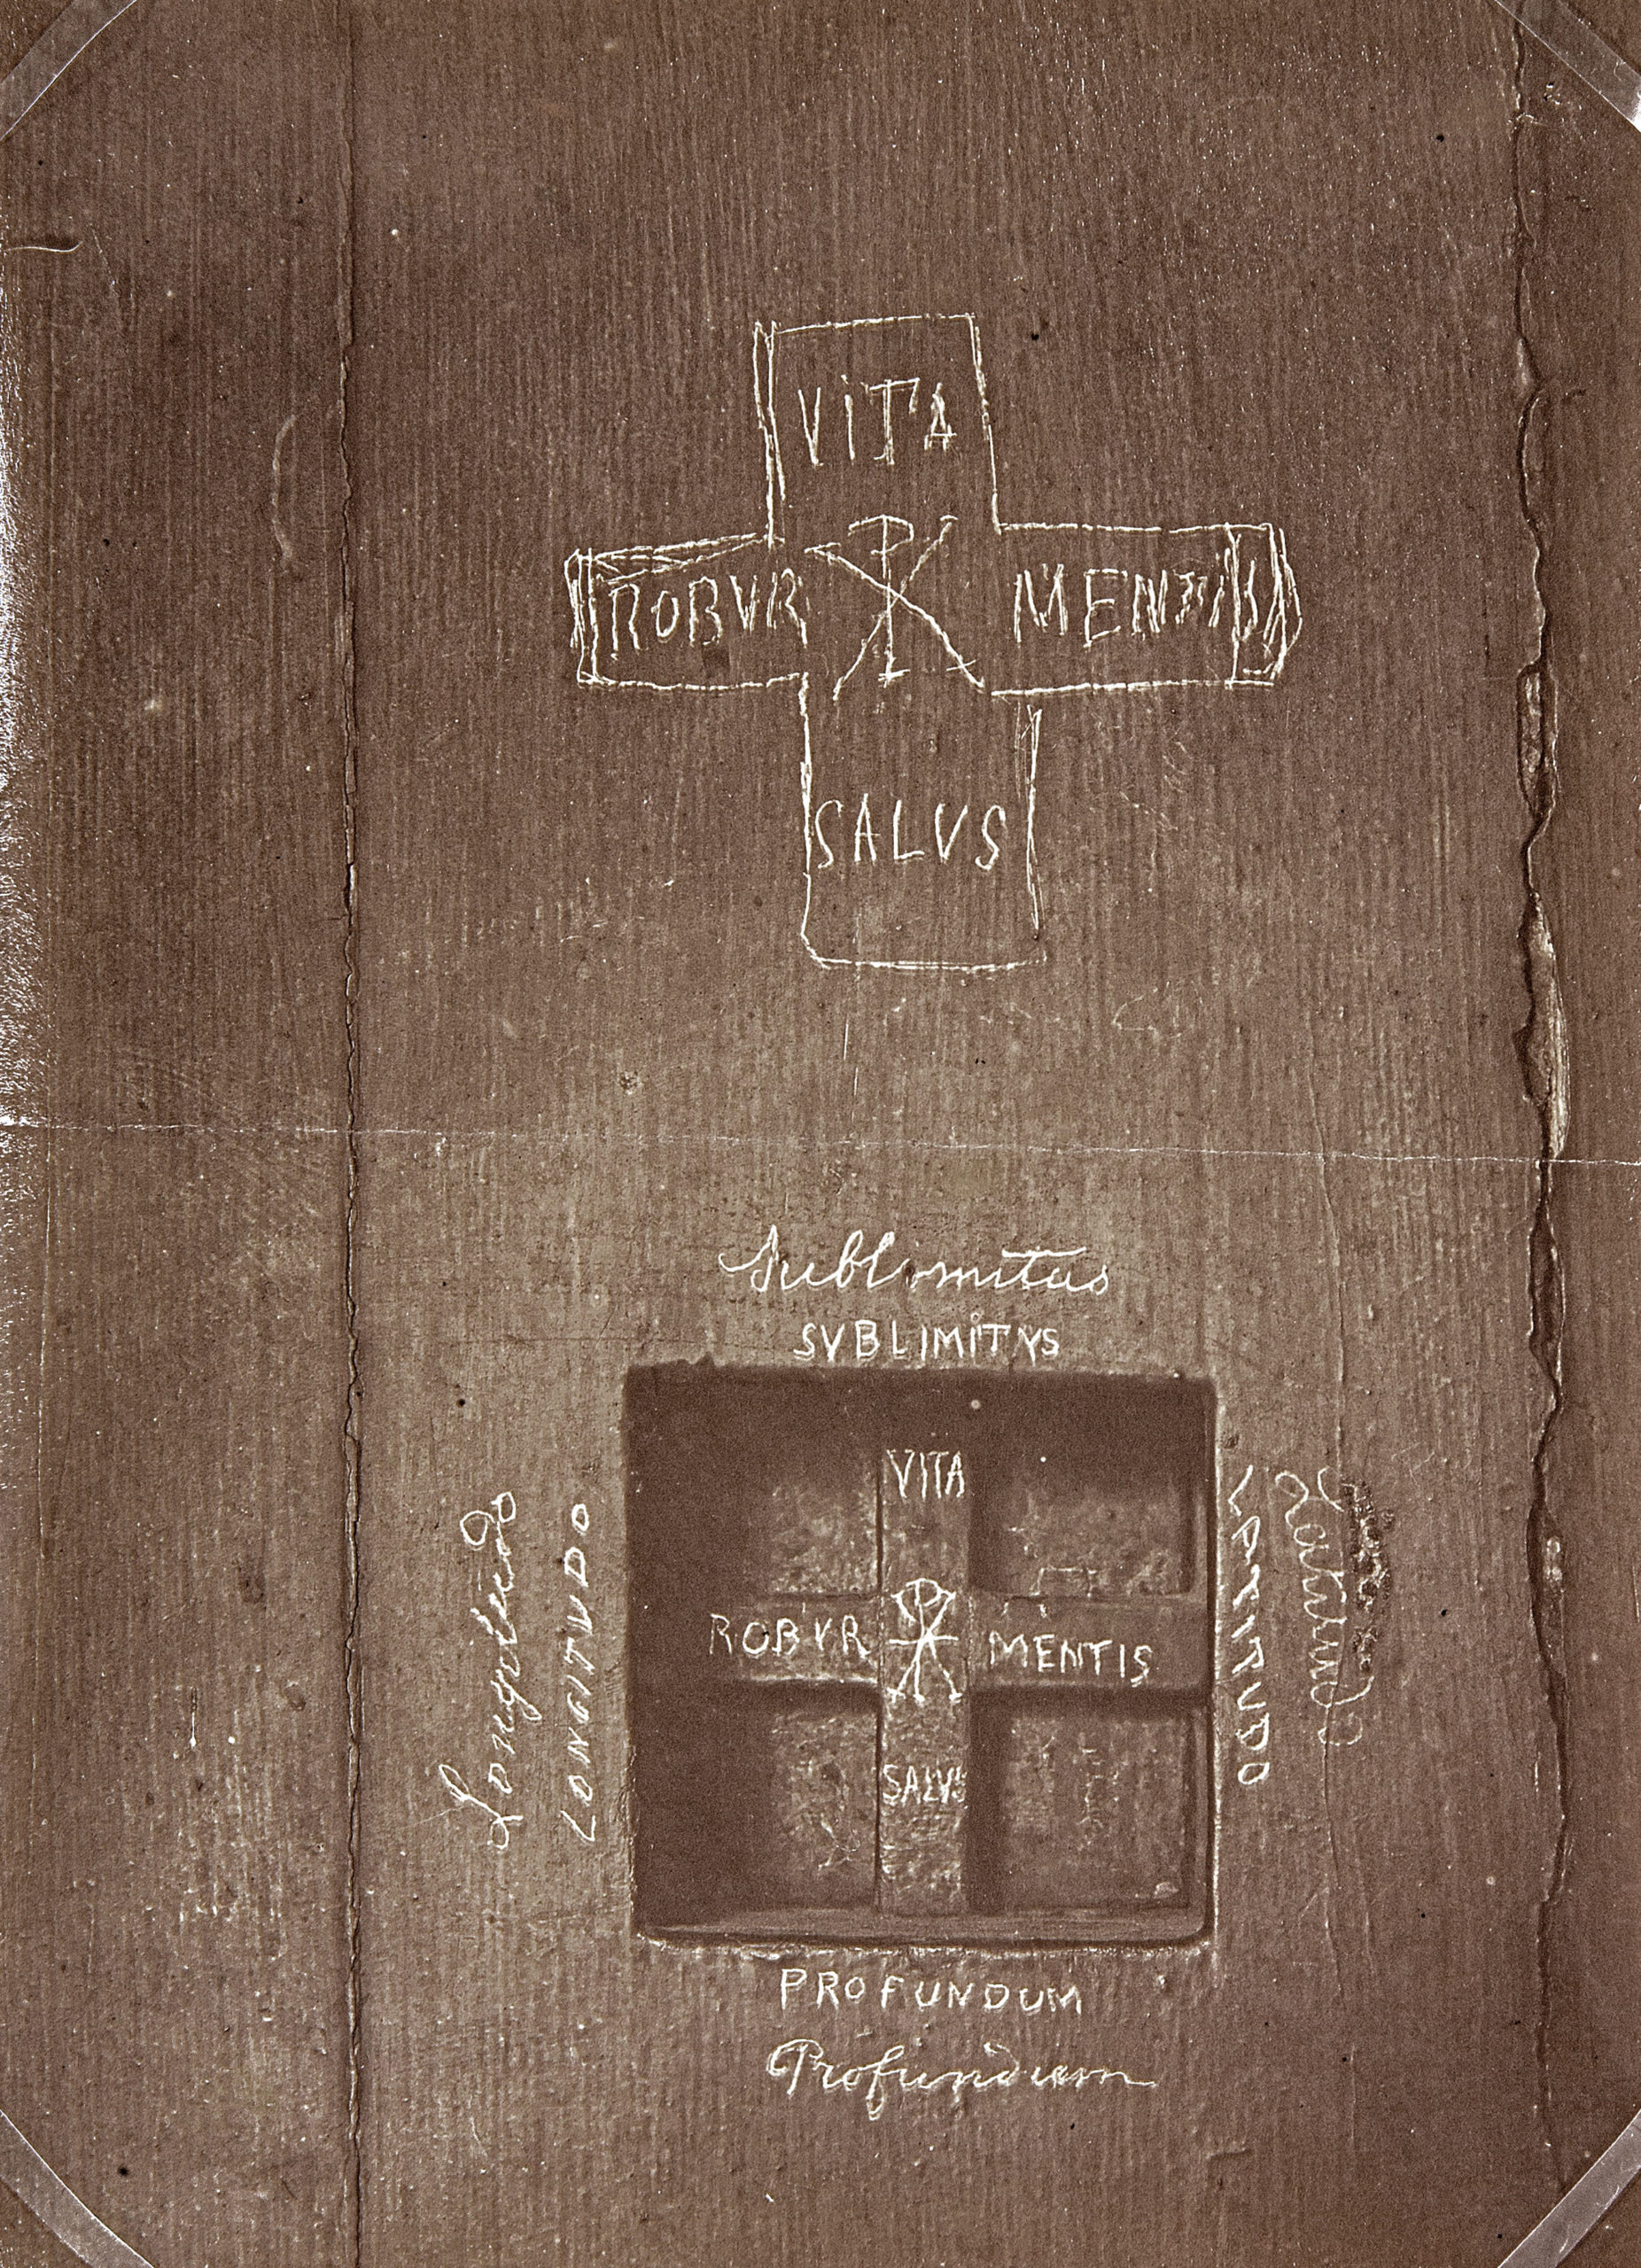 VITA
ROBVR ☧ MENTIS
SALVS
Sublimitus
SVBLIMITVS
Longitudo
LONGITVDO
VITA
ROBVR ☧ MENTIS
SALVS
LATITUDO
Latitudo
PROFUNDUM
Profundum